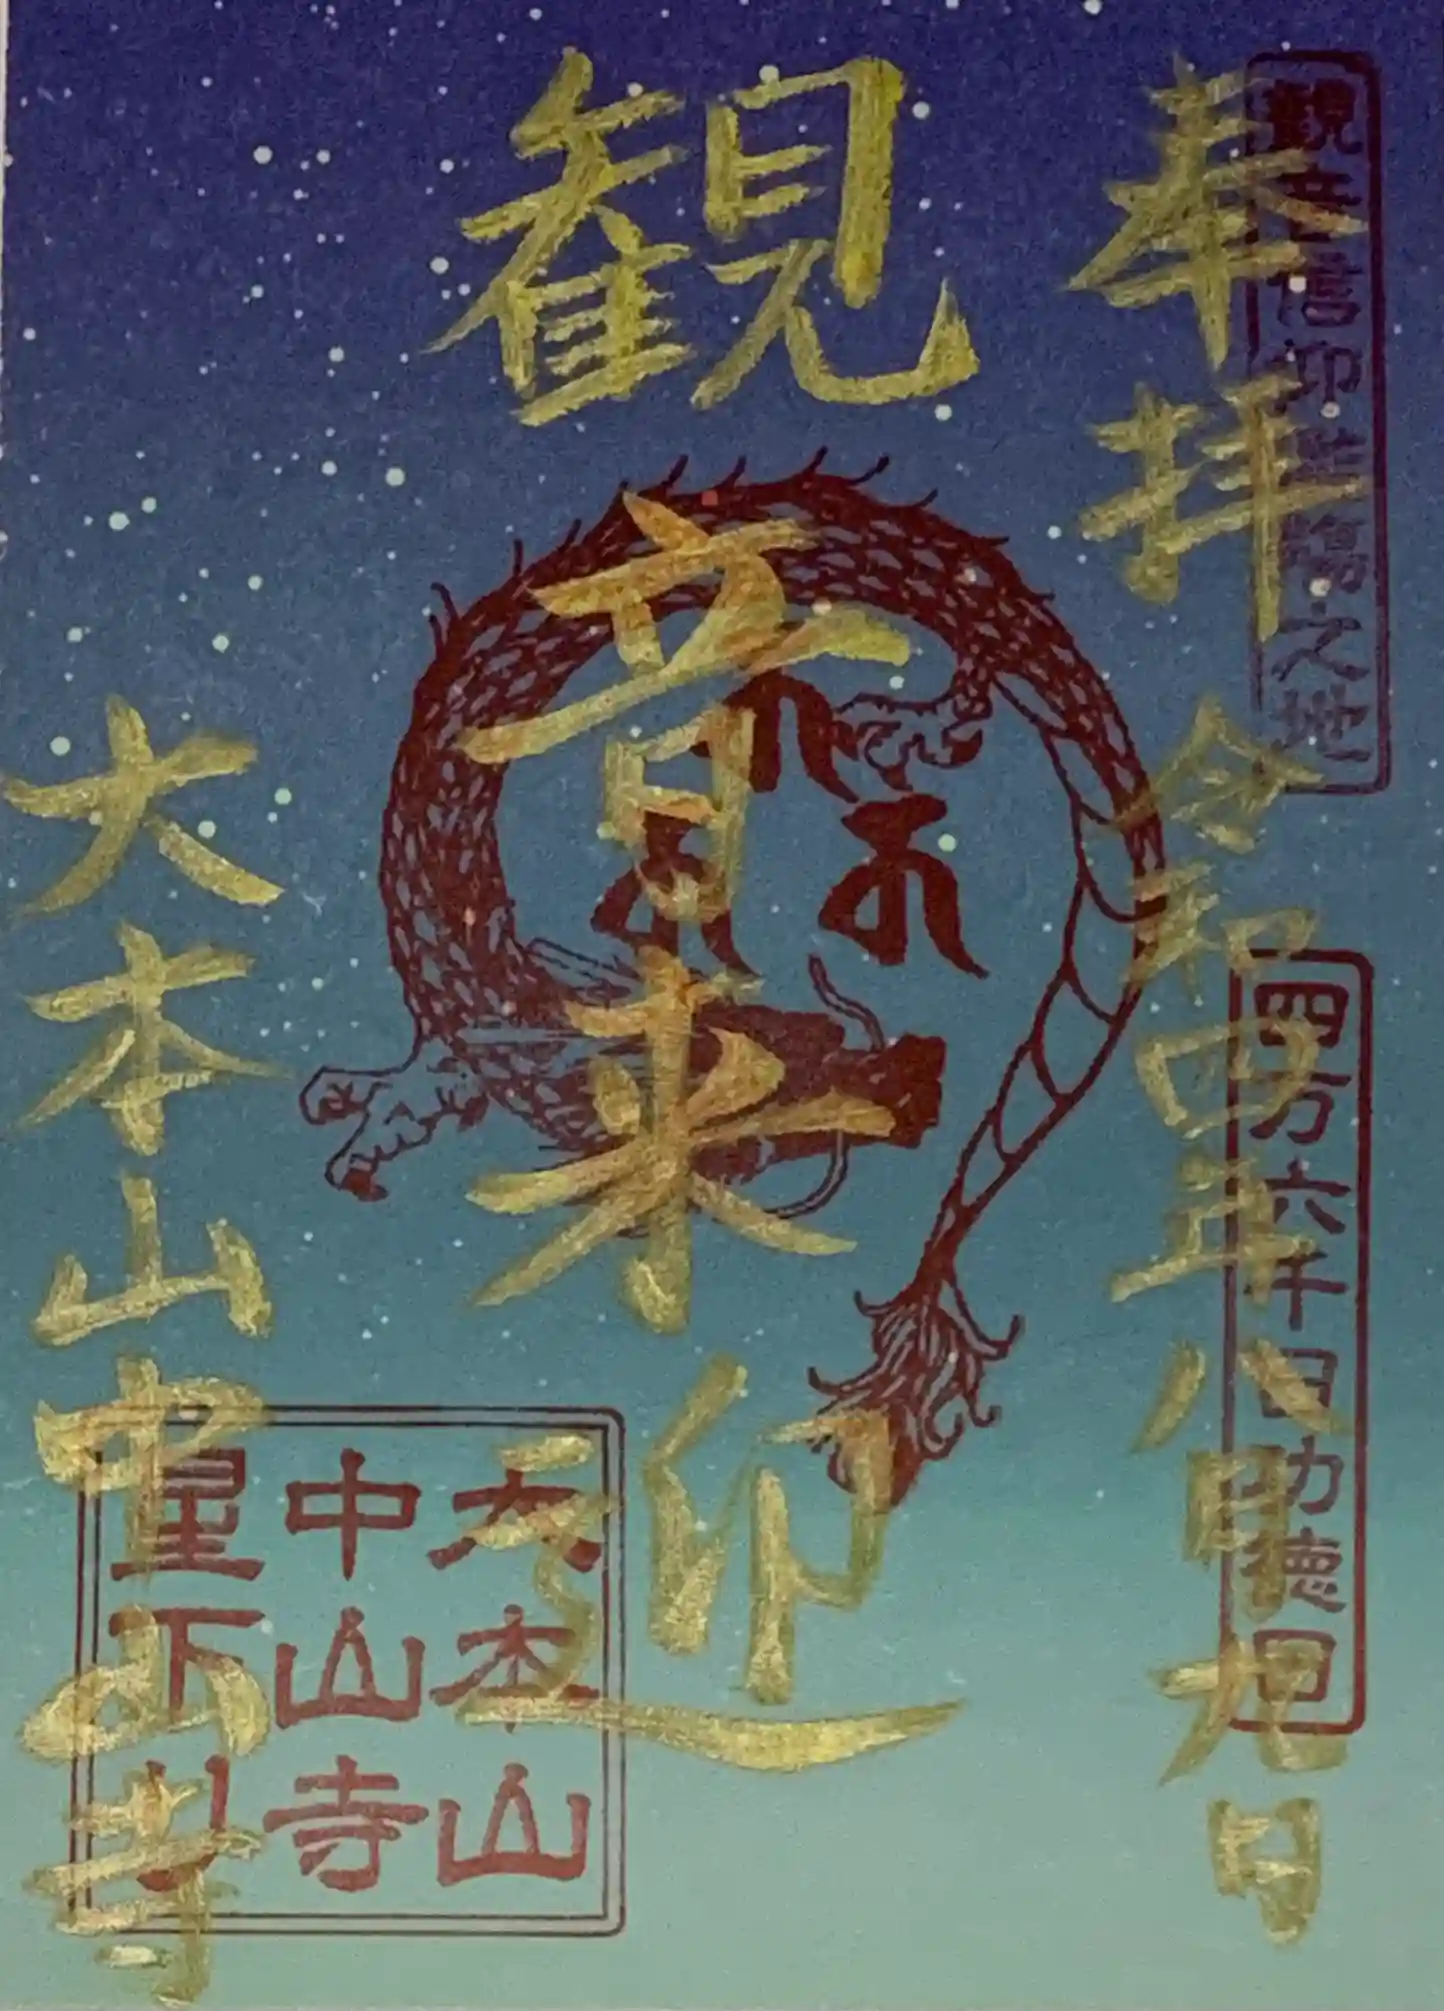 奉拝
令和四年八月九日
観音信仰発祥之地
四万六千日功徳回
観音来迎
大本山中山寺
大本山
中山寺
星下り